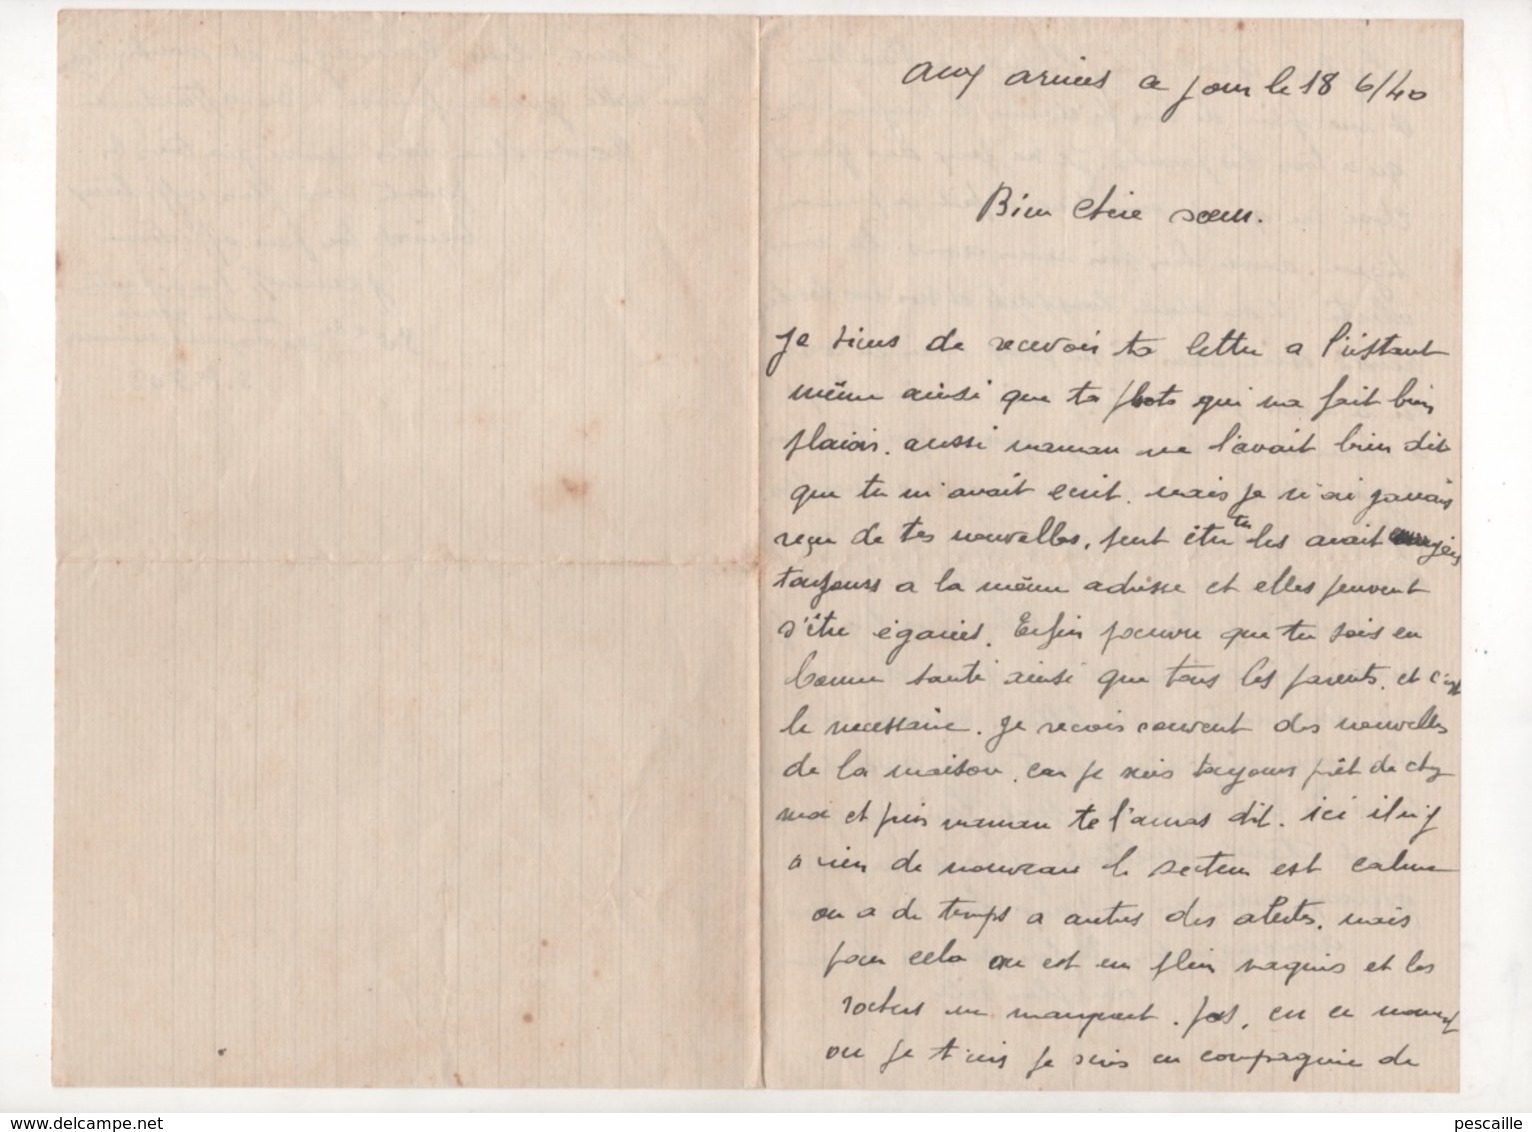 aux armées ce jour le 18 6/40
Bien chère soeur.
Je viens de recevoir ta lettre a l'instant
même ainsi que ta photo qui ma fait bien
plaisir. aussi maman me l'avait bien dit
que tu m'avait ecrit. mais je n'ai jamais
reçu de tes nouvelles, peut être tu les avait
toujours a la même adresse et elles peuvent
s'être égarées. Enfin pourvu que tu sois en
bonne santé ainsi que tous les parents. et c'est
le necessaire. Je recois souvent des nouvelles
de la maison. car je suis toujours prêt de chez
moi et puis maman te l'auras dit. ici il n'y
a rien de nouveau le secteur est calme
on a de temps a autres des alertes. mais
pour cela on est en plein maquis et les
rochers ne manquent pas, en ce moment
ou je t'ecris je suis en compagnie de
pescaille